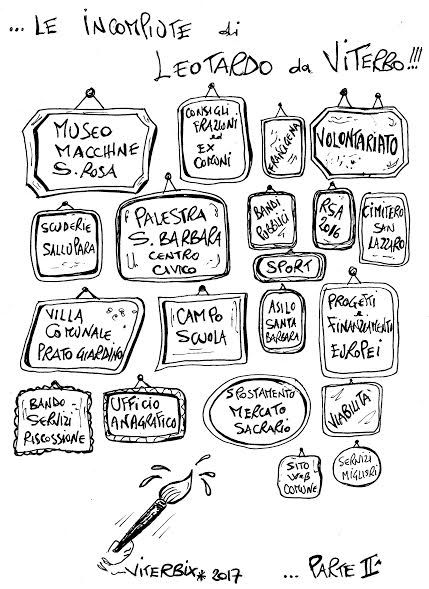 ... LE INCOMPIUTE di
LEOTARDO da VITERBO!!!
MUSEO
MACCHINE
S. ROSA
CONSIGLI
FRAZIONI
ed
EX
COMUNI
FRANCIGENA
VOLONTARIATO
SCUDERIE
SALLUPARA
PALESTRA
S. BARBARA
CENTRO
CIVICO
BANDI
PUBBLICI
RSA
2016
CIMITERO
SAN
LAZZARO
SPORT
VILLA
COMUNALE
PRATO GIARDINO
CAMPO
SCUOLA
ASILO
SANTA
BARBARA
PROGETTI
e
FINANZIAMENTI
EUROPEI
BANDO
SERVIZI
RISCOSSIONE
UFFICIO
ANAGRAFICO
SPOSTAMENTO
MERCATO
SACRARIO
VIABILITÀ
SITO
WEB
COMUNE
SERVIZI
MIGLIORI
VITERBIX * 2017
... PARTE IIª